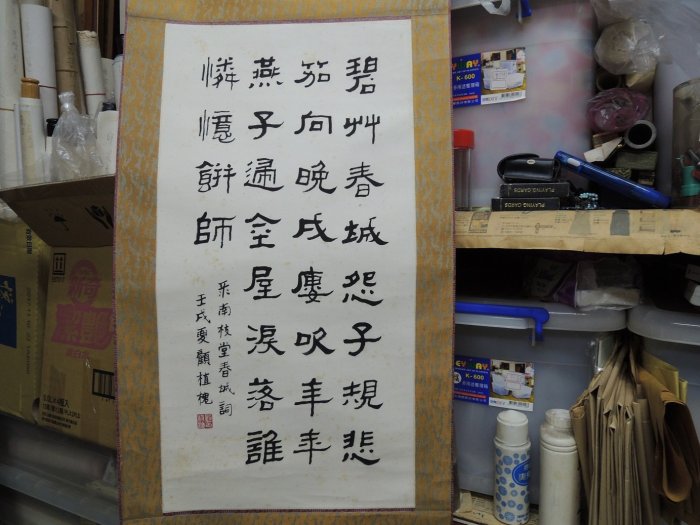 碧艸春城怨子規悲
笳向晚戍廔吹年年
燕子歸金屋淚落誰
憐憶餅師
采南枝堂春城詞
壬戌夏顧植槐
K-600
PLAYING CARDS
PLAYING CARDS
K-600